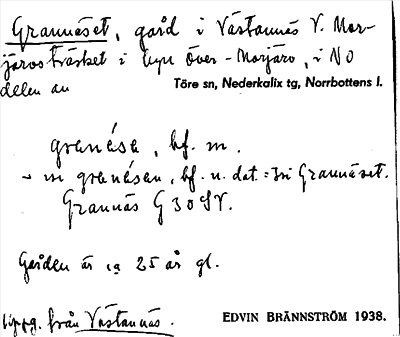 Grannäset, gård i Västannäs V. Mor-
järvsträsket i byn Över-Morjärv, i NO
delen av
Töre sn, Nederkalix tg, Norrbottens l.
granésə, bf. m.
granésən, bf. n. dat. = Grannäset.
Grannäs G 30 SV.
Gården är ca 25 år gl.
Uppg. från Västannäs.
EDVIN BRÄNNSTRÖM 1938.